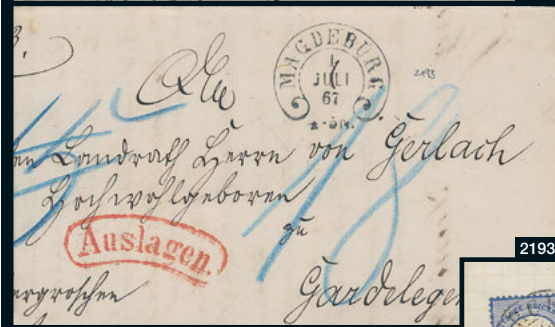 An
MAGDEBURG
1
JULI
67
2193
den Landrath Herrn von Gerlach
Hochwohlgeboren
zu
Auslagen.
Gardelegen
ergroschen
18
2193